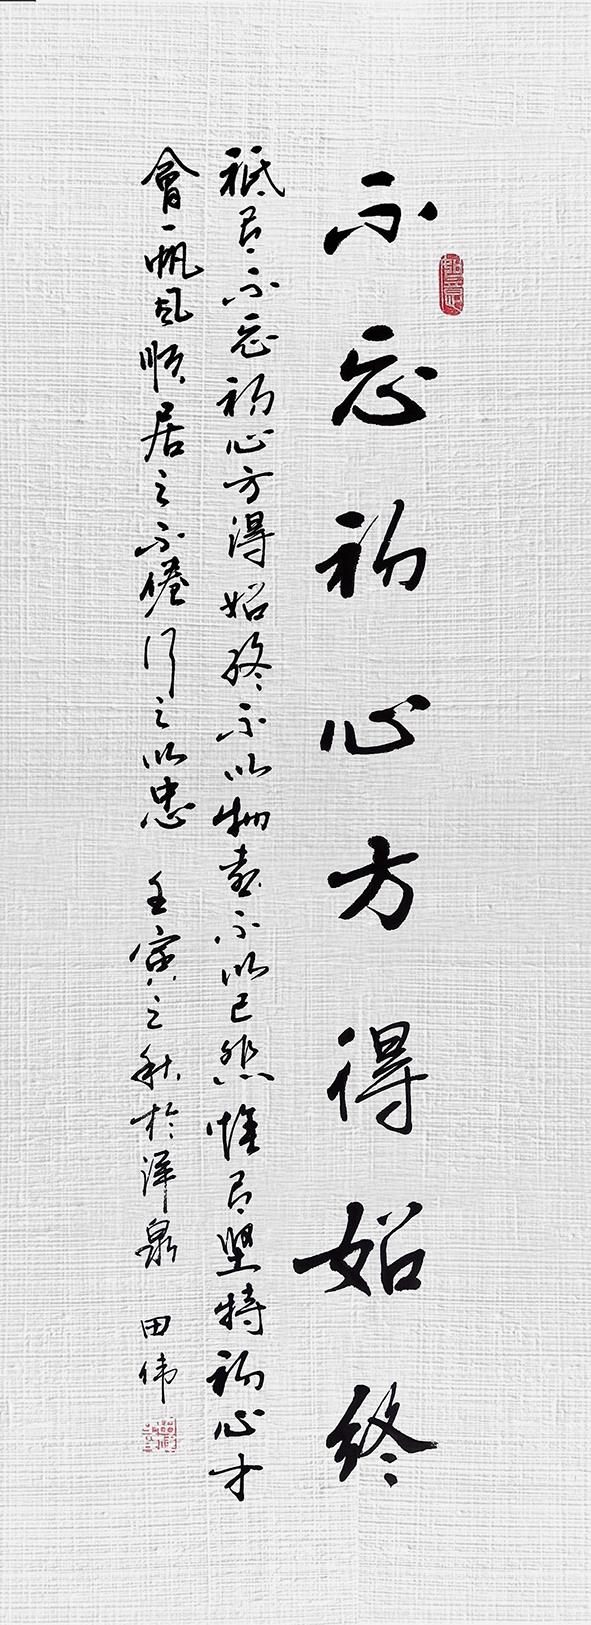 不忘初心方得始终
祗有不忘初心方得始终不以物喜不以己悲惟有坚持初心才
會一帆风順居之不倦行之以忠 壬寅之秋於泉 田伟